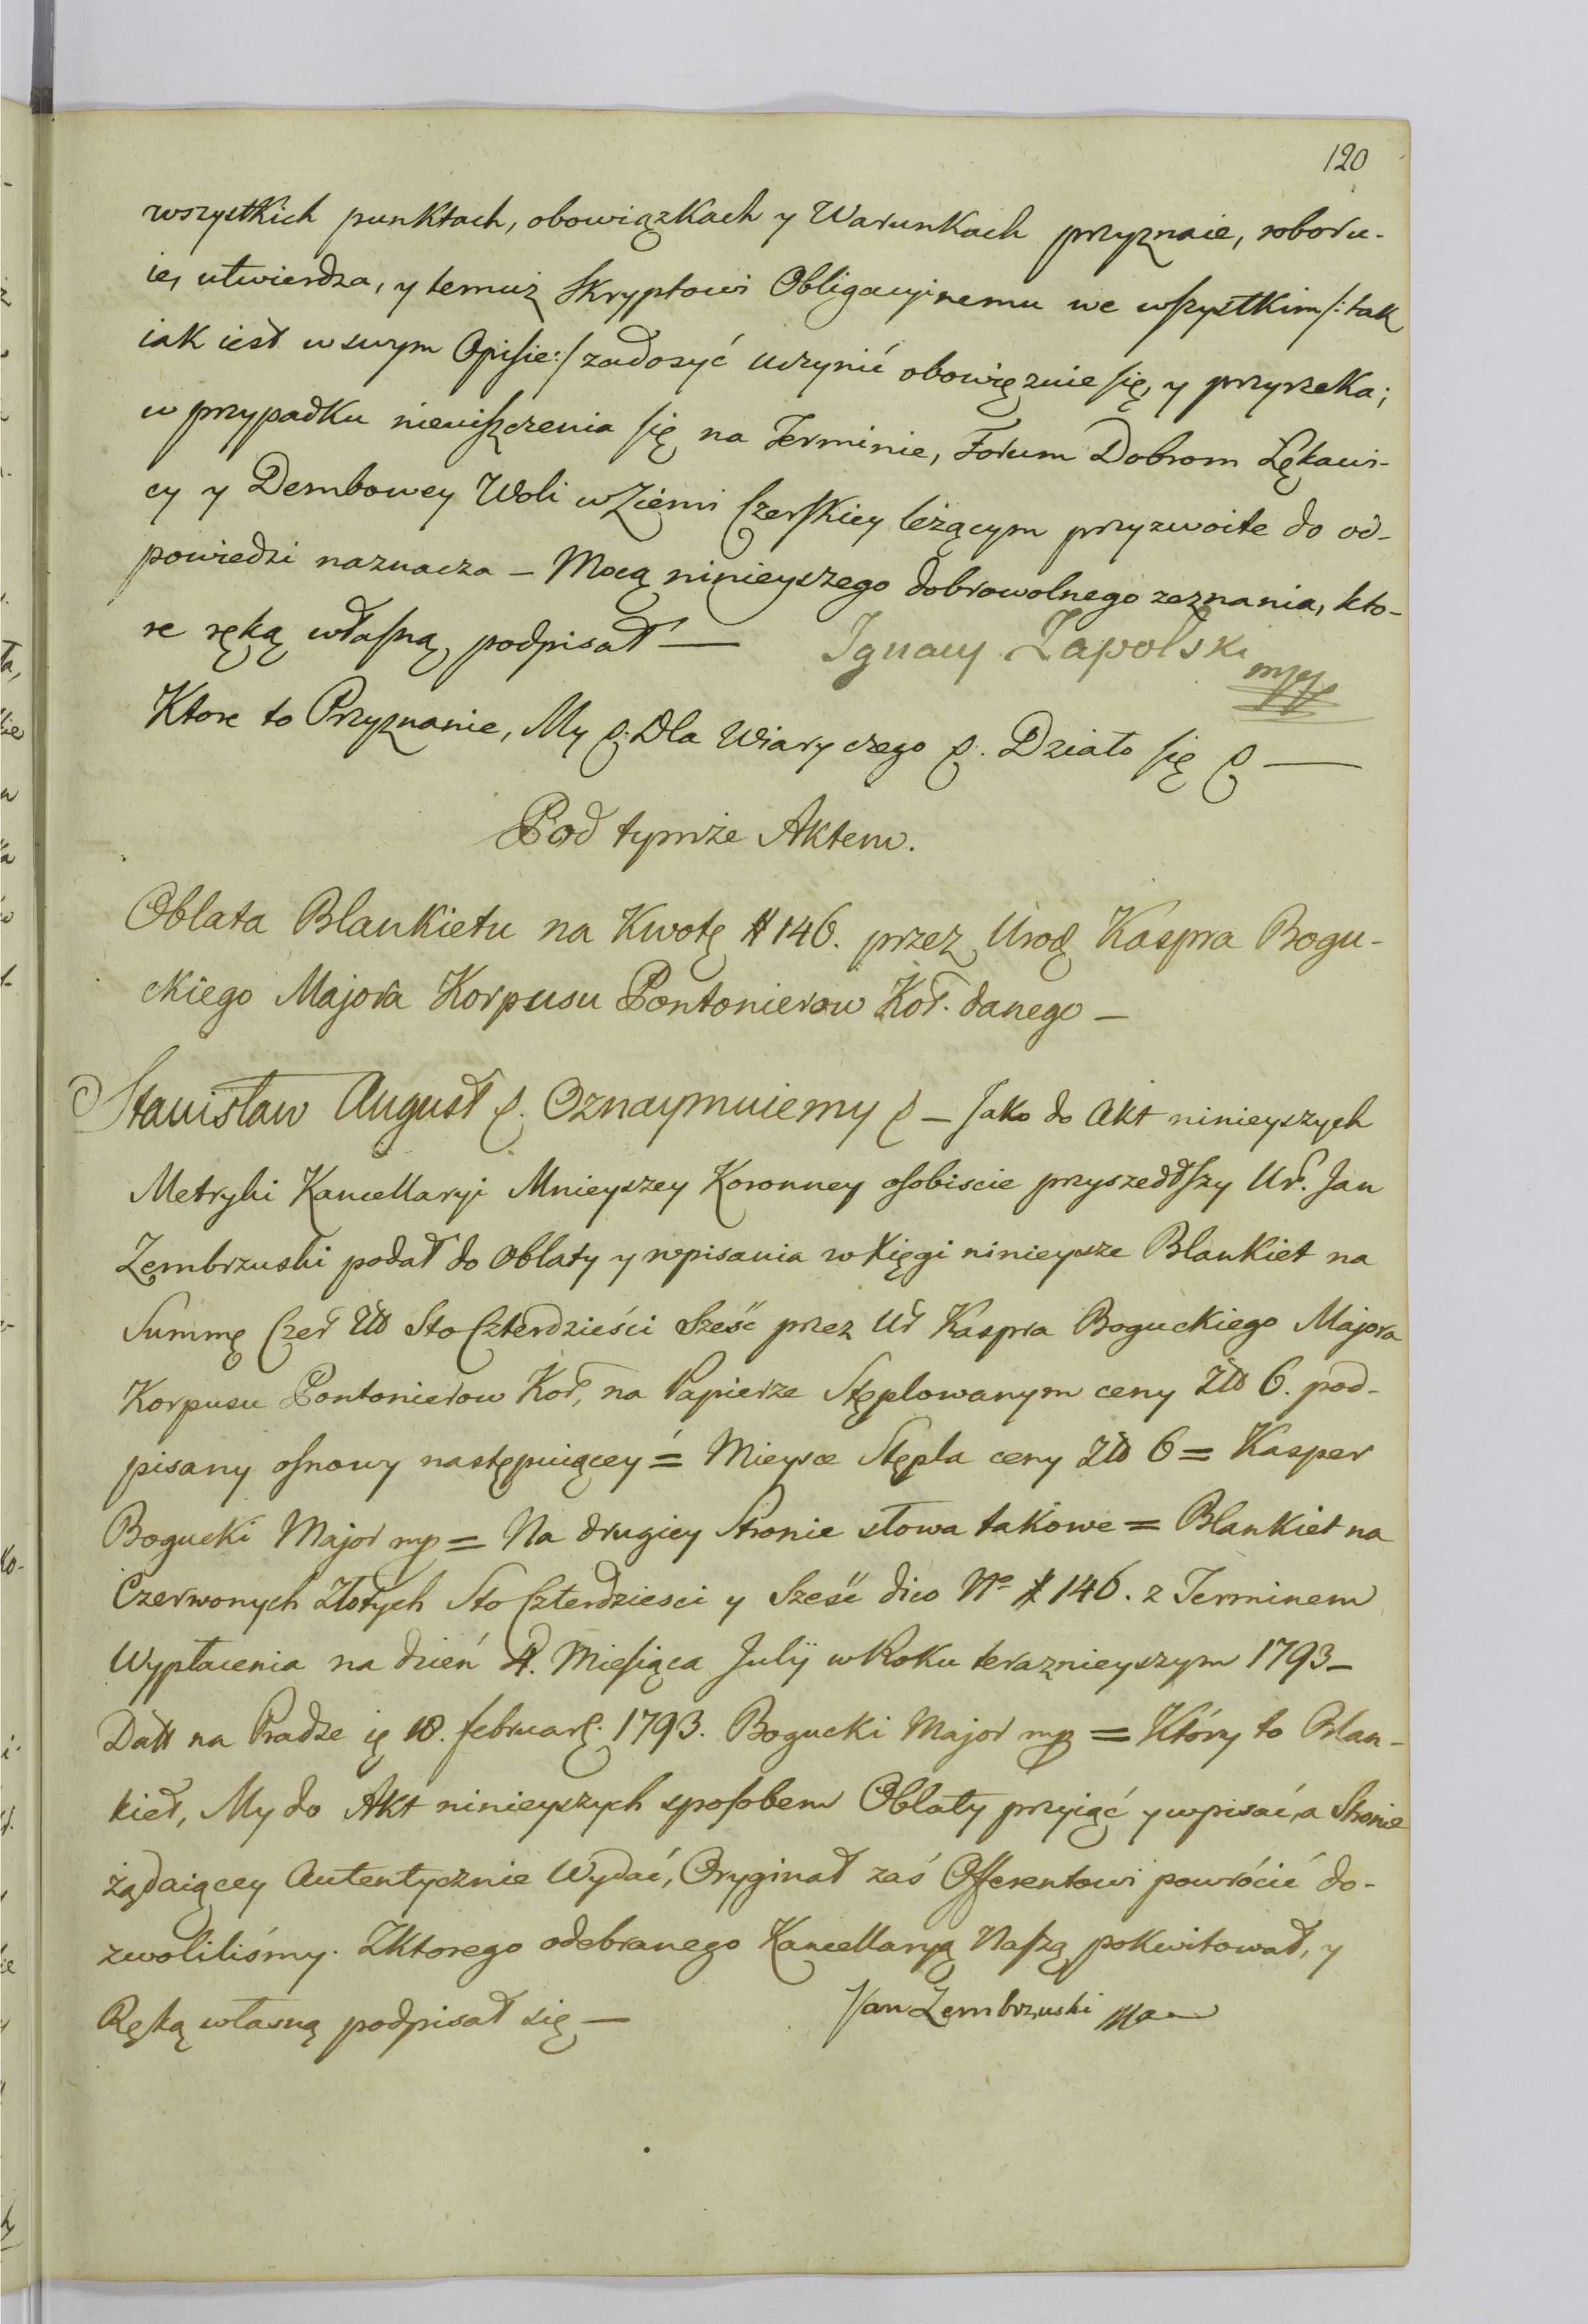 120
wszystkich punktach, obowiązkach y Warunkach przyznaie, roboru-
ie, utwierdza, y temuż Skryptowi Obligacyinemu we wszystkim /: tak
iak iest w swym Opisie :/ zadosyć uczynić obowięzuie się, y przyrzeka;
w przypadku nieuiszczenia się na Terminie, Forum Dobrom Łękawi-
cy y Dembowey Woli w Ziemi Czerskiey leżącym przyzwoite do od-
powiedzi naznacza – Mocą ninieyszego dobrowolnego zeznania, kto-
re ręką własną podpisał —
Ignacy Zapolski mpp
Ktore to Przyznanie, My p. Dla Wiary czego p. Działo się p —
Pod tymże Aktem.
Oblata Blankietu na Kwotę # 146. przez Urod Kaspra Bogu-
ckiego Majora Korpusu Pontonierow Kor. danego –
Stanisław August p. Oznaymuiemy p – Jako do Akt ninieyszych
Metryki Kancellaryi Mnieyszey Koronney osobiscie przyszedłszy Ur. Jan
Zembrzuski podał do Oblaty y wpisania w Xięgi ninieysze Blankiet na
Summę Czer Zło Sto Czterdzieści Sześć przez Ur Kaspra Boguckiego Majora
Korpusu Pontonierow Kor, na Papierze Stęplowanym ceny Zło 6. pod-
pisany osnowy następuiącey = Mieysce Stępla ceny Zło 6 = Kasper
Bogucki Major mp = Na drugiey Stronie słowa takowe = Blankiet na
Czerwonych Złotych Sto Czterdziesci y Sześć dico No # 146. z Terminem
Wypłacenia na dzień 4. Miesiąca Julij w Roku teraznieyszym 1793 –
Datt na Pradze 18. februar. 1793. Bogucki Major mp = Który to Blan-
kiet, My do Akt ninieyszych sposobem Oblaty przyiąć y wpisać, a Stronie
żądaiącey Autentycznie Wydać, Oryginał zaś Offerentowi powrócić do-
zwoliliśmy. Z ktorego odebranego Kancellaryą Naszą pokwitował, y
Ręką własną podpisał się —
Jan Zembrzuski